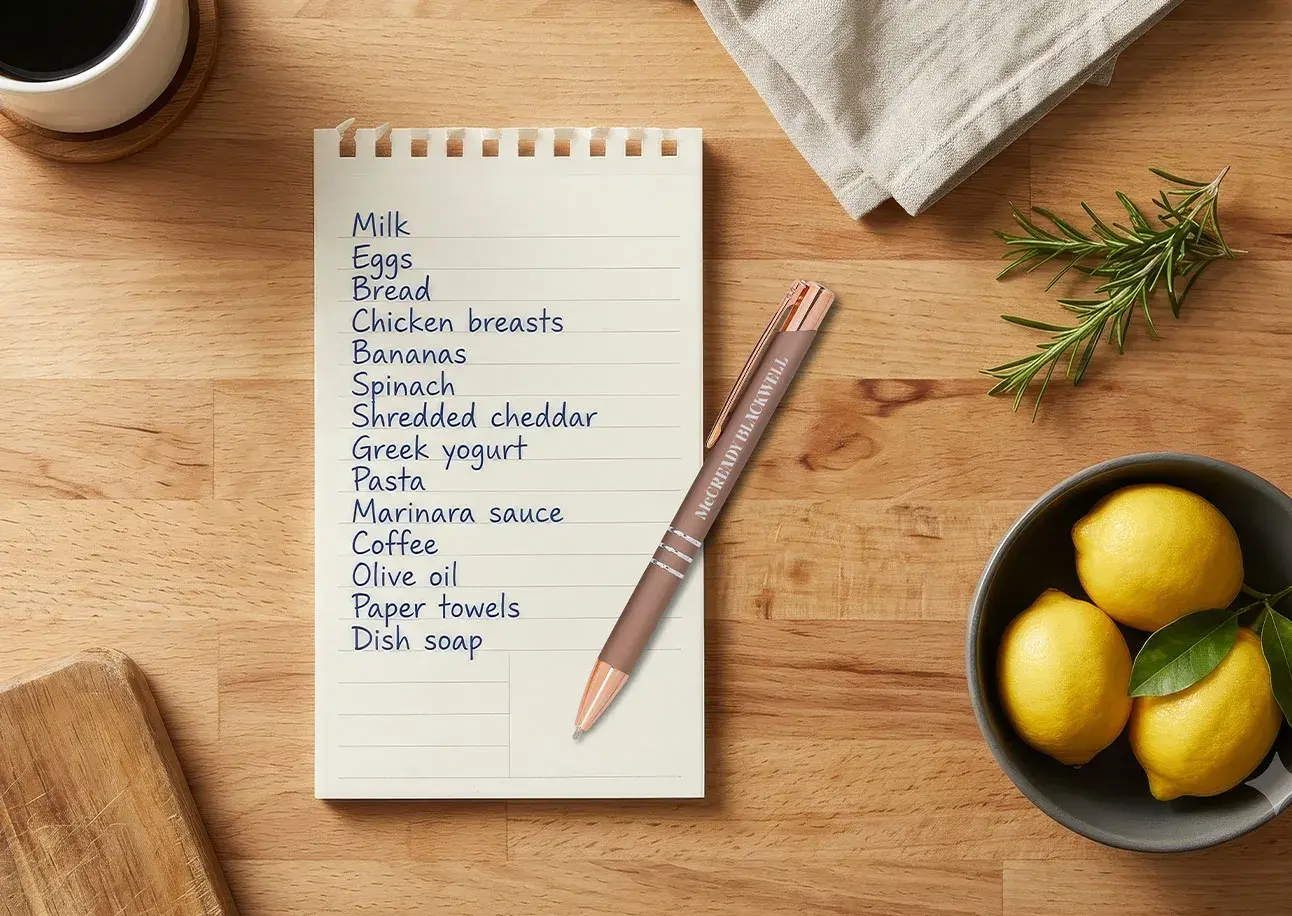 Milk
Eggs
Bread
Chicken breasts
Bananas
Spinach
Shredded cheddar
Greek yogurt
Pasta
Marinara sauce
Coffee
Olive oil
Paper towels
Dish soap
McCREADY BLACKWELL